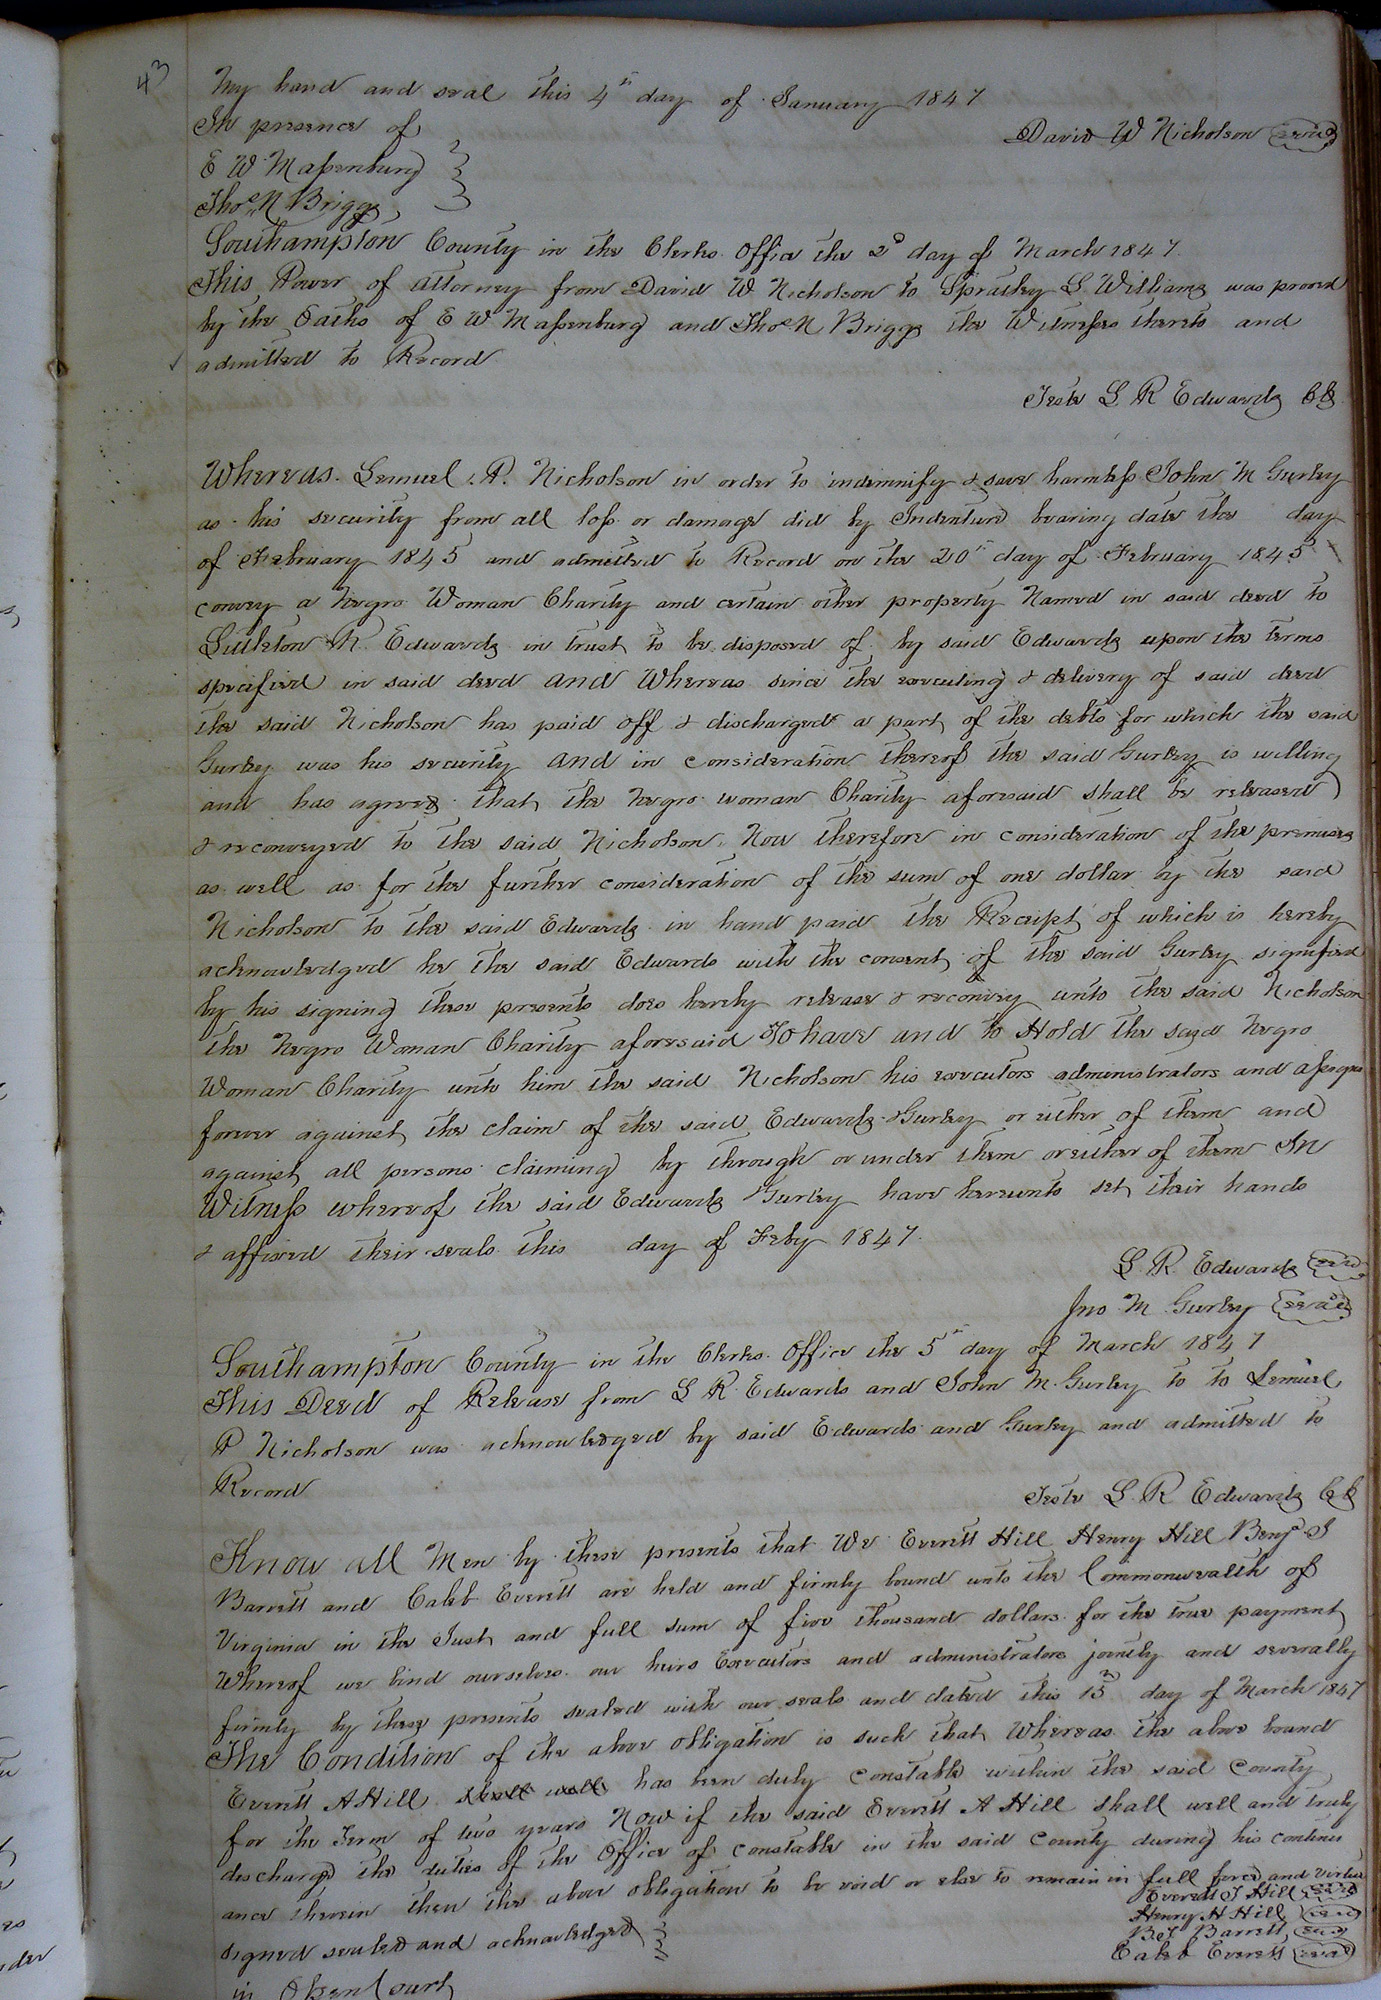 43
My hand and seal this 4th day of January 1847
In presence of
David W Nicholson seal
E W Massenburg
Thos N Briggs
Southampton County in the Clerks Office the 2d day of March 1847.
This Power of attorney from David W Nicholson to Spratley S Williams was proved
by the Oaths of E W Massenburg and Thos N Briggs the Witnesses thereto and
admitted to Record
Teste L R Edwards Clk
Whereas Lemuel R. Nicholson in order to indemnify & save harmless John M Gurley
as his security from all loss or damage did by Indenture bearing date the day
of February 1845 and admitted to Record on the 20th day of February 1845
convey a Negro Woman Charity and certain other property Named in said deed to
Littleton R. Edwards in trust to be disposed of by said Edwards upon the terms
specified in said deed and Whereas since the executing & delivery of said deed
the said Nicholson has paid off & discharged a part of the debts for which the said
Gurley was his security and in consideration thereof the said Gurley is willing
and has agreed that the Negro woman Charity aforesaid shall be released
& reconveyed to the said Nicholson. Now therefore in consideration of the premises
as well as for the further consideration of the sum of one dollar by the said
Nicholson to the said Edwards in hand paid the Receipt of which is hereby
acknowledged he the said Edwards with the consent of the said Gurley signified
by his signing these presents does hereby release & reconvey unto the said Nicholson
the Negro Woman Charity aforesaid To have and to Hold the said Negro
Woman Charity unto him the said Nicholson his executors administrators and assigns
forever against the claim of the said Edwards & Gurley or either of them and
against all persons claiming by through or under them or either of them In
Witness whereof the said Edwards Gurley have hereunto set their hands
& affixed their seals this day of Feby 1847.
L R. Edwards seal
Jno M Gurley seal
Southampton County in the Clerks Office the 5th day of March 1847
This Deed of Release from L R Edwards and John M. Gurley to to Lemuel
R Nicholson was acknowledged by said Edwards and Gurley and admitted to
Record
Teste L. R Edwards Clk
Know all Men by these presents that We Everett Hill Henry Hill Benjn J
Barrett and Caleb Everett are held and firmly bound unto the Commonwealth of
Virginia in the Just and full sum of five thousand dollars for the true payment
Whereof we bind ourselves our heirs Executors and administrators jointly and severally
firmly by these presents sealed with our seals and dated this 15th day of March 1847
The Condition of the above obligation is such that Whereas the above bound
Everett A Hill shall well has been duly constable within the said County
for the Term of two years Now if the said Everett A Hill shall well and truly
discharge the duties of the Office of constable in the said County during his continu
ance therein then the above obligation to be void or else to remain in full force and virtue
Everett J Hill seal
Henry H Hill seal
B. J Barrett seal
Caleb Everett seal
signed sealed and acknowledged
in Open Court